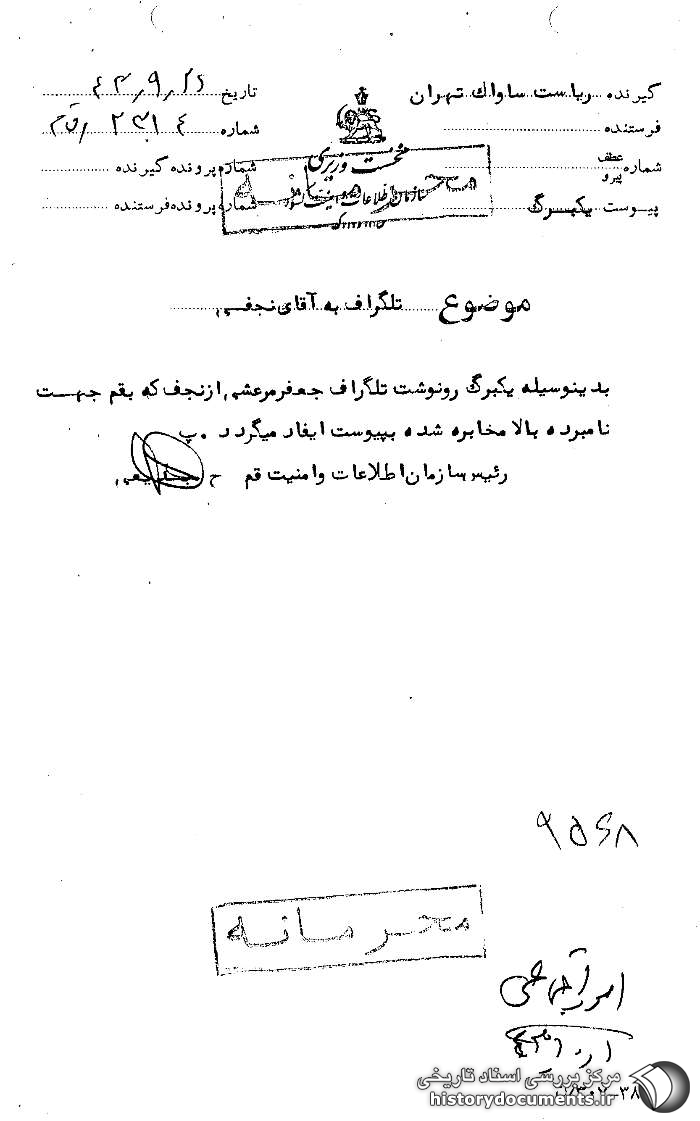 گیرنده ریاست ساواک تهران
فرستنده
شماره عطف پیرو
پیوست یکبرگ
نخست وزیری
سازمان اطلاعات و امنیت کشور
محرمانه
تاریخ ۴۳٫۹٫۲۶
شماره ۲۳۱۴
شماره پرونده گیرنده
شماره پرونده فرستنده
موضوع تلگراف به آقای نجفی
بدینوسیله یکبرگ رونوشت تلگراف جعفر مرعشی از نجف که بقم جهت
نامبرده بالا مخابره شده بپیوست ایفاد میگردد . پ
رئیس سازمان اطلاعات و امنیت قم
۹۵۶۸
محرمانه
مرکز بررسی اسناد تاریخی
historydocuments.ir